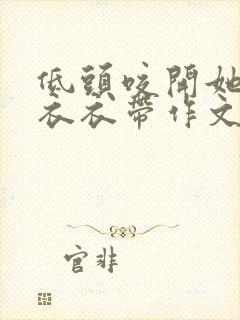 低頭咬開她
衣衣帶作文
官非